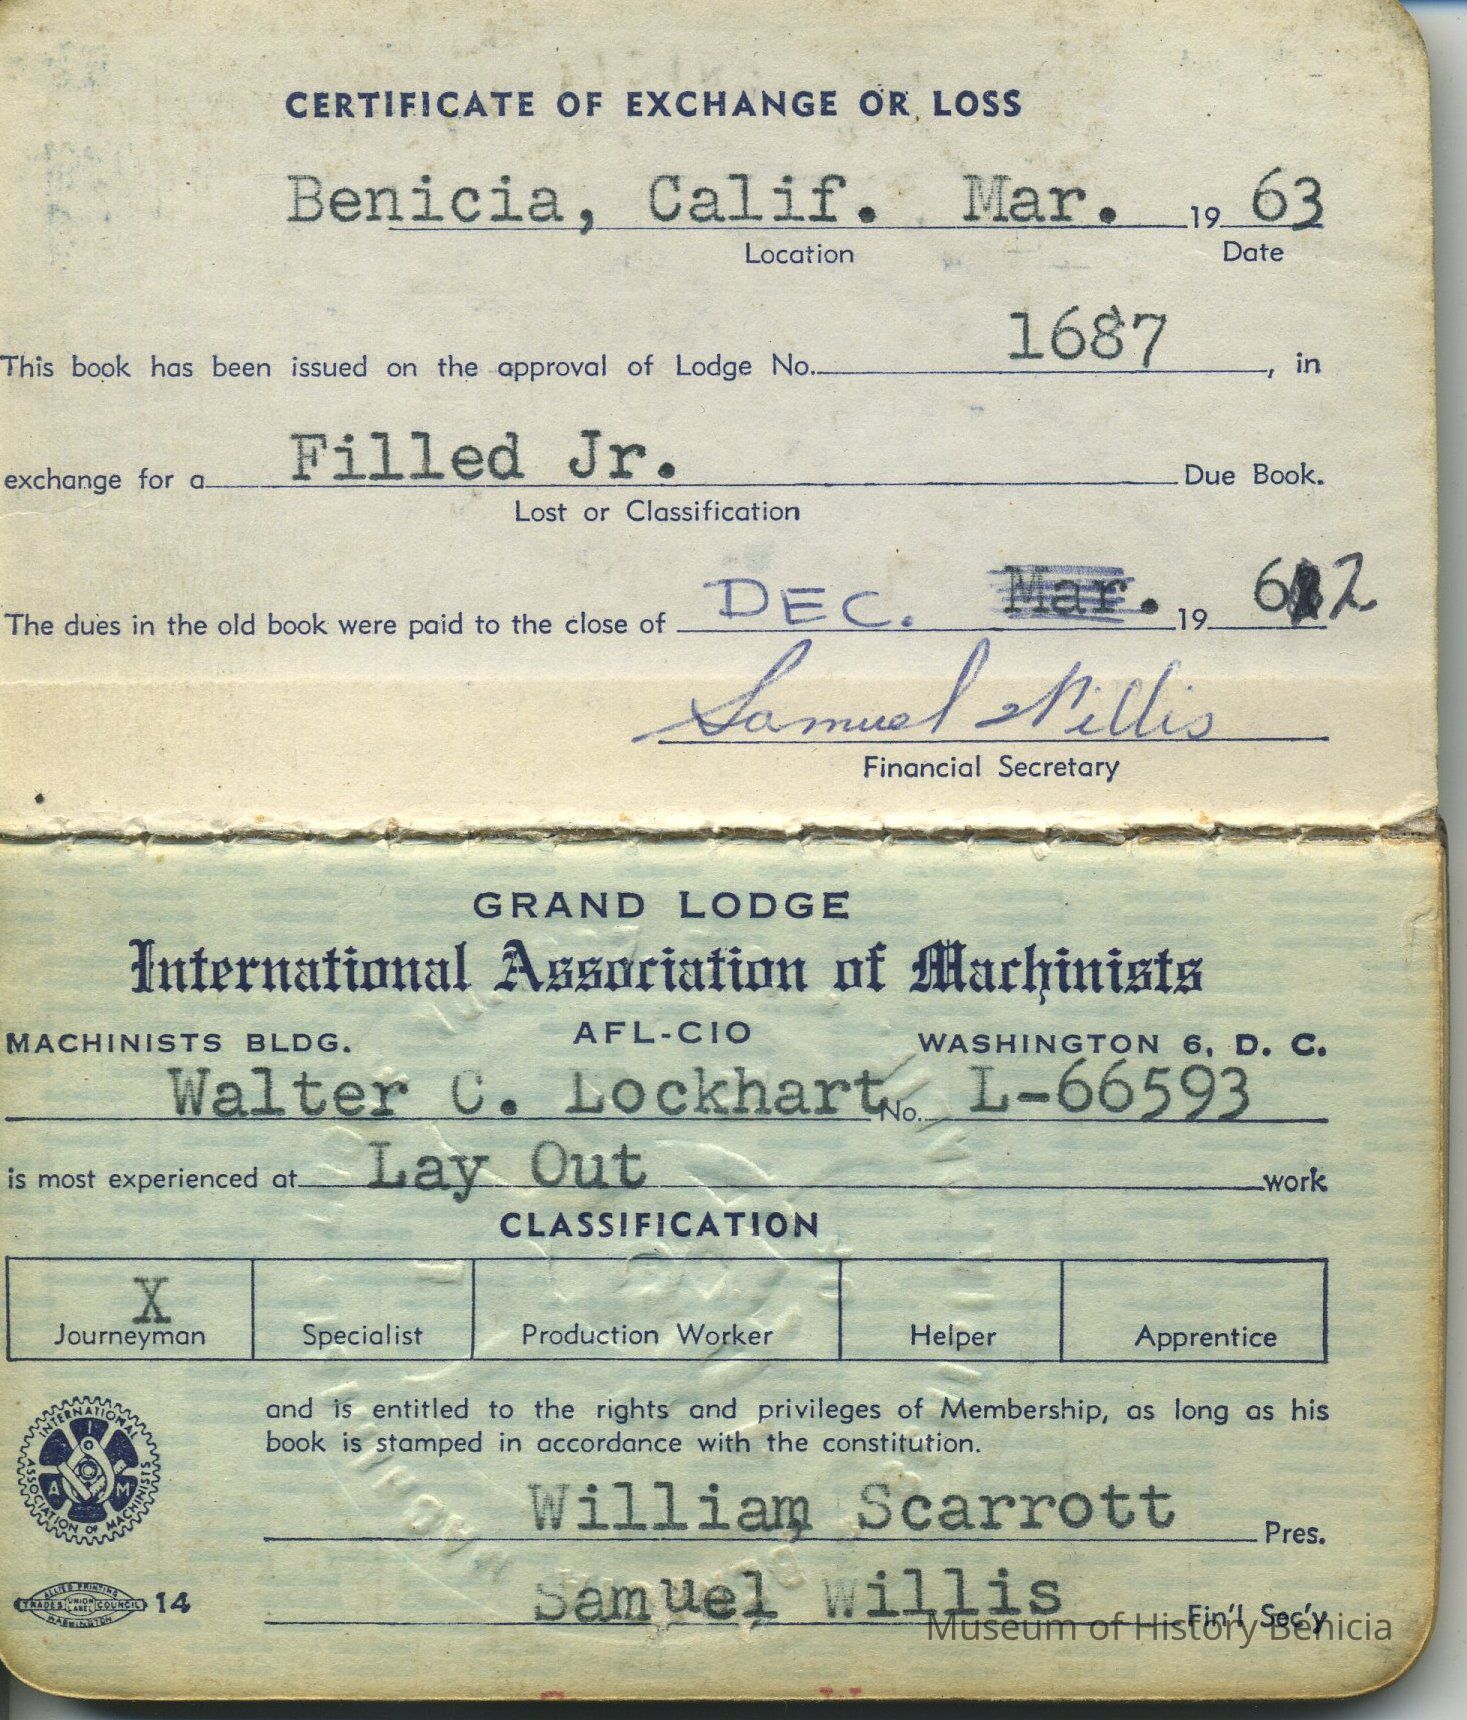 CERTIFICATE OF EXCHANGE OR LOSS
Benicia, Calif. Mar. 19 63
Location Date
This book has been issued on the approval of Lodge No. 1687, in
exchange for a Filled Jr. Due Book.
Lost or Classification
The dues in the old book were paid to the close of DEC. Mar. 19 62
Samuel Willis
Financial Secretary
GRAND LODGE
International Association of Machinists
MACHINISTS BLDG. AFL-CIO WASHINGTON 6, D. C.
Walter C. Lockhart No. L-66593
is most experienced at Lay Out work
CLASSIFICATION
X
Journeyman Specialist Production Worker Helper Apprentice
and is entitled to the rights and privileges of Membership, as long as his
book is stamped in accordance with the constitution.
INTERNATIONAL ASSOCIATION OF MACHINISTS
I A M
William Scarrott Pres.
ALLIED PRINTING
TRADES UNION LABEL COUNCIL
WASHINGTON
14
Samuel Willis Fin'l Sec'y
Museum of History Benicia